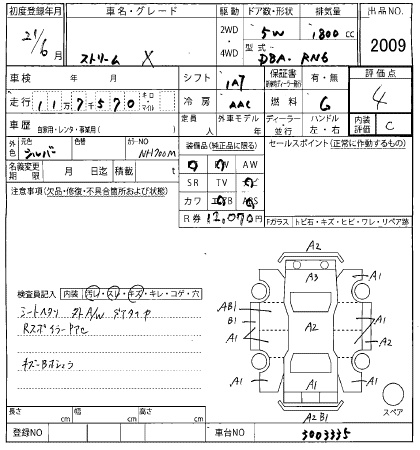 初度登録年月 車名・グレード 駆動 ドア数・形状 排気量 出品NO.
21/6月 ストリーム X 2WD・4WD 5W 1,800cc 2009
型式 DBA-RN6
車検 年 月 シフト IA7 保証書 有・無 評価点 4
走行 117570 キロ・マイル 冷房 AAC 燃料 G
車歴 自家用・レンタ・事業用( ) 定員 人 外車モデル 年 ディーラー・並行 ハンドル 左・右 内装評価 C
外色 元色 シルバー 色替 カラーNO NH700M 装備品(純正品に限る) セールスポイント(正常に作動するもの)
名義変更期限 月 日迄 積載 t AW
注意事項(欠品・修復・不具合箇所および状態) SR TV
カワ
R券 12,070円 Fガラス トビ石・キズ・ヒビ・ワレ・リペア跡
A2
A3
A1 A1
AB1
B1
A1 A2 A1
A2
A1 A1
A1
A2B1
スペア
検査員記入 内装 汚レ・スレ・キズ・キレ・コゲ・穴
長さ cm 幅 cm 高さ cm
登録NO 車台NO 3003335